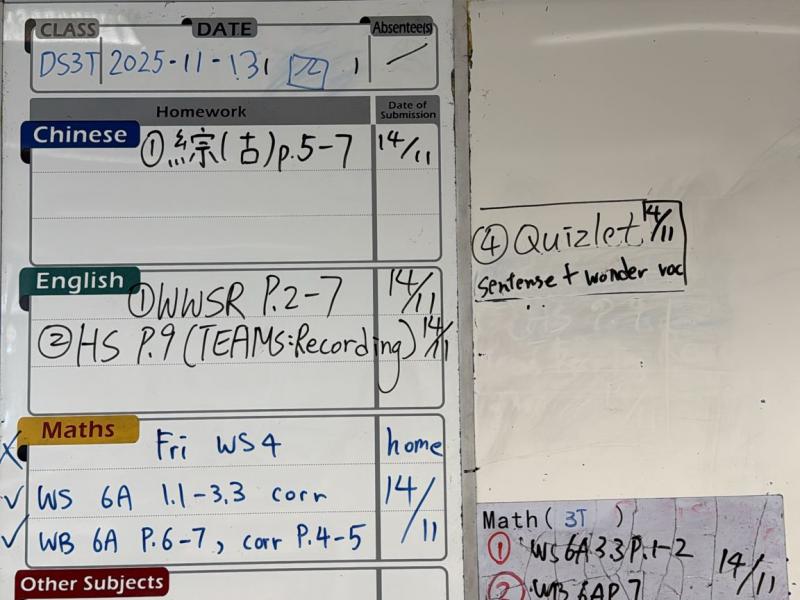 CLASS DATE Absentee(s)
DS3T 2025-11-13, 四, /
Homework Date of Submission
Chinese
① 綜(古)p.5-7 14/11
English
① WWSR P.2-7 14/11
② HS P.9 (TEAMS:Recording) 14/11
Maths
Fri WS 4 home
WS 6A 1.1-3.3 corr 14/11
WB 6A P.6-7, corr P.4-5
Other Subjects
④ Quizlet 14/11
sentense + wonder voc
Math( 3T )
① WS 6A 3.3 P.1-2 14/11
② WB 6A P 7